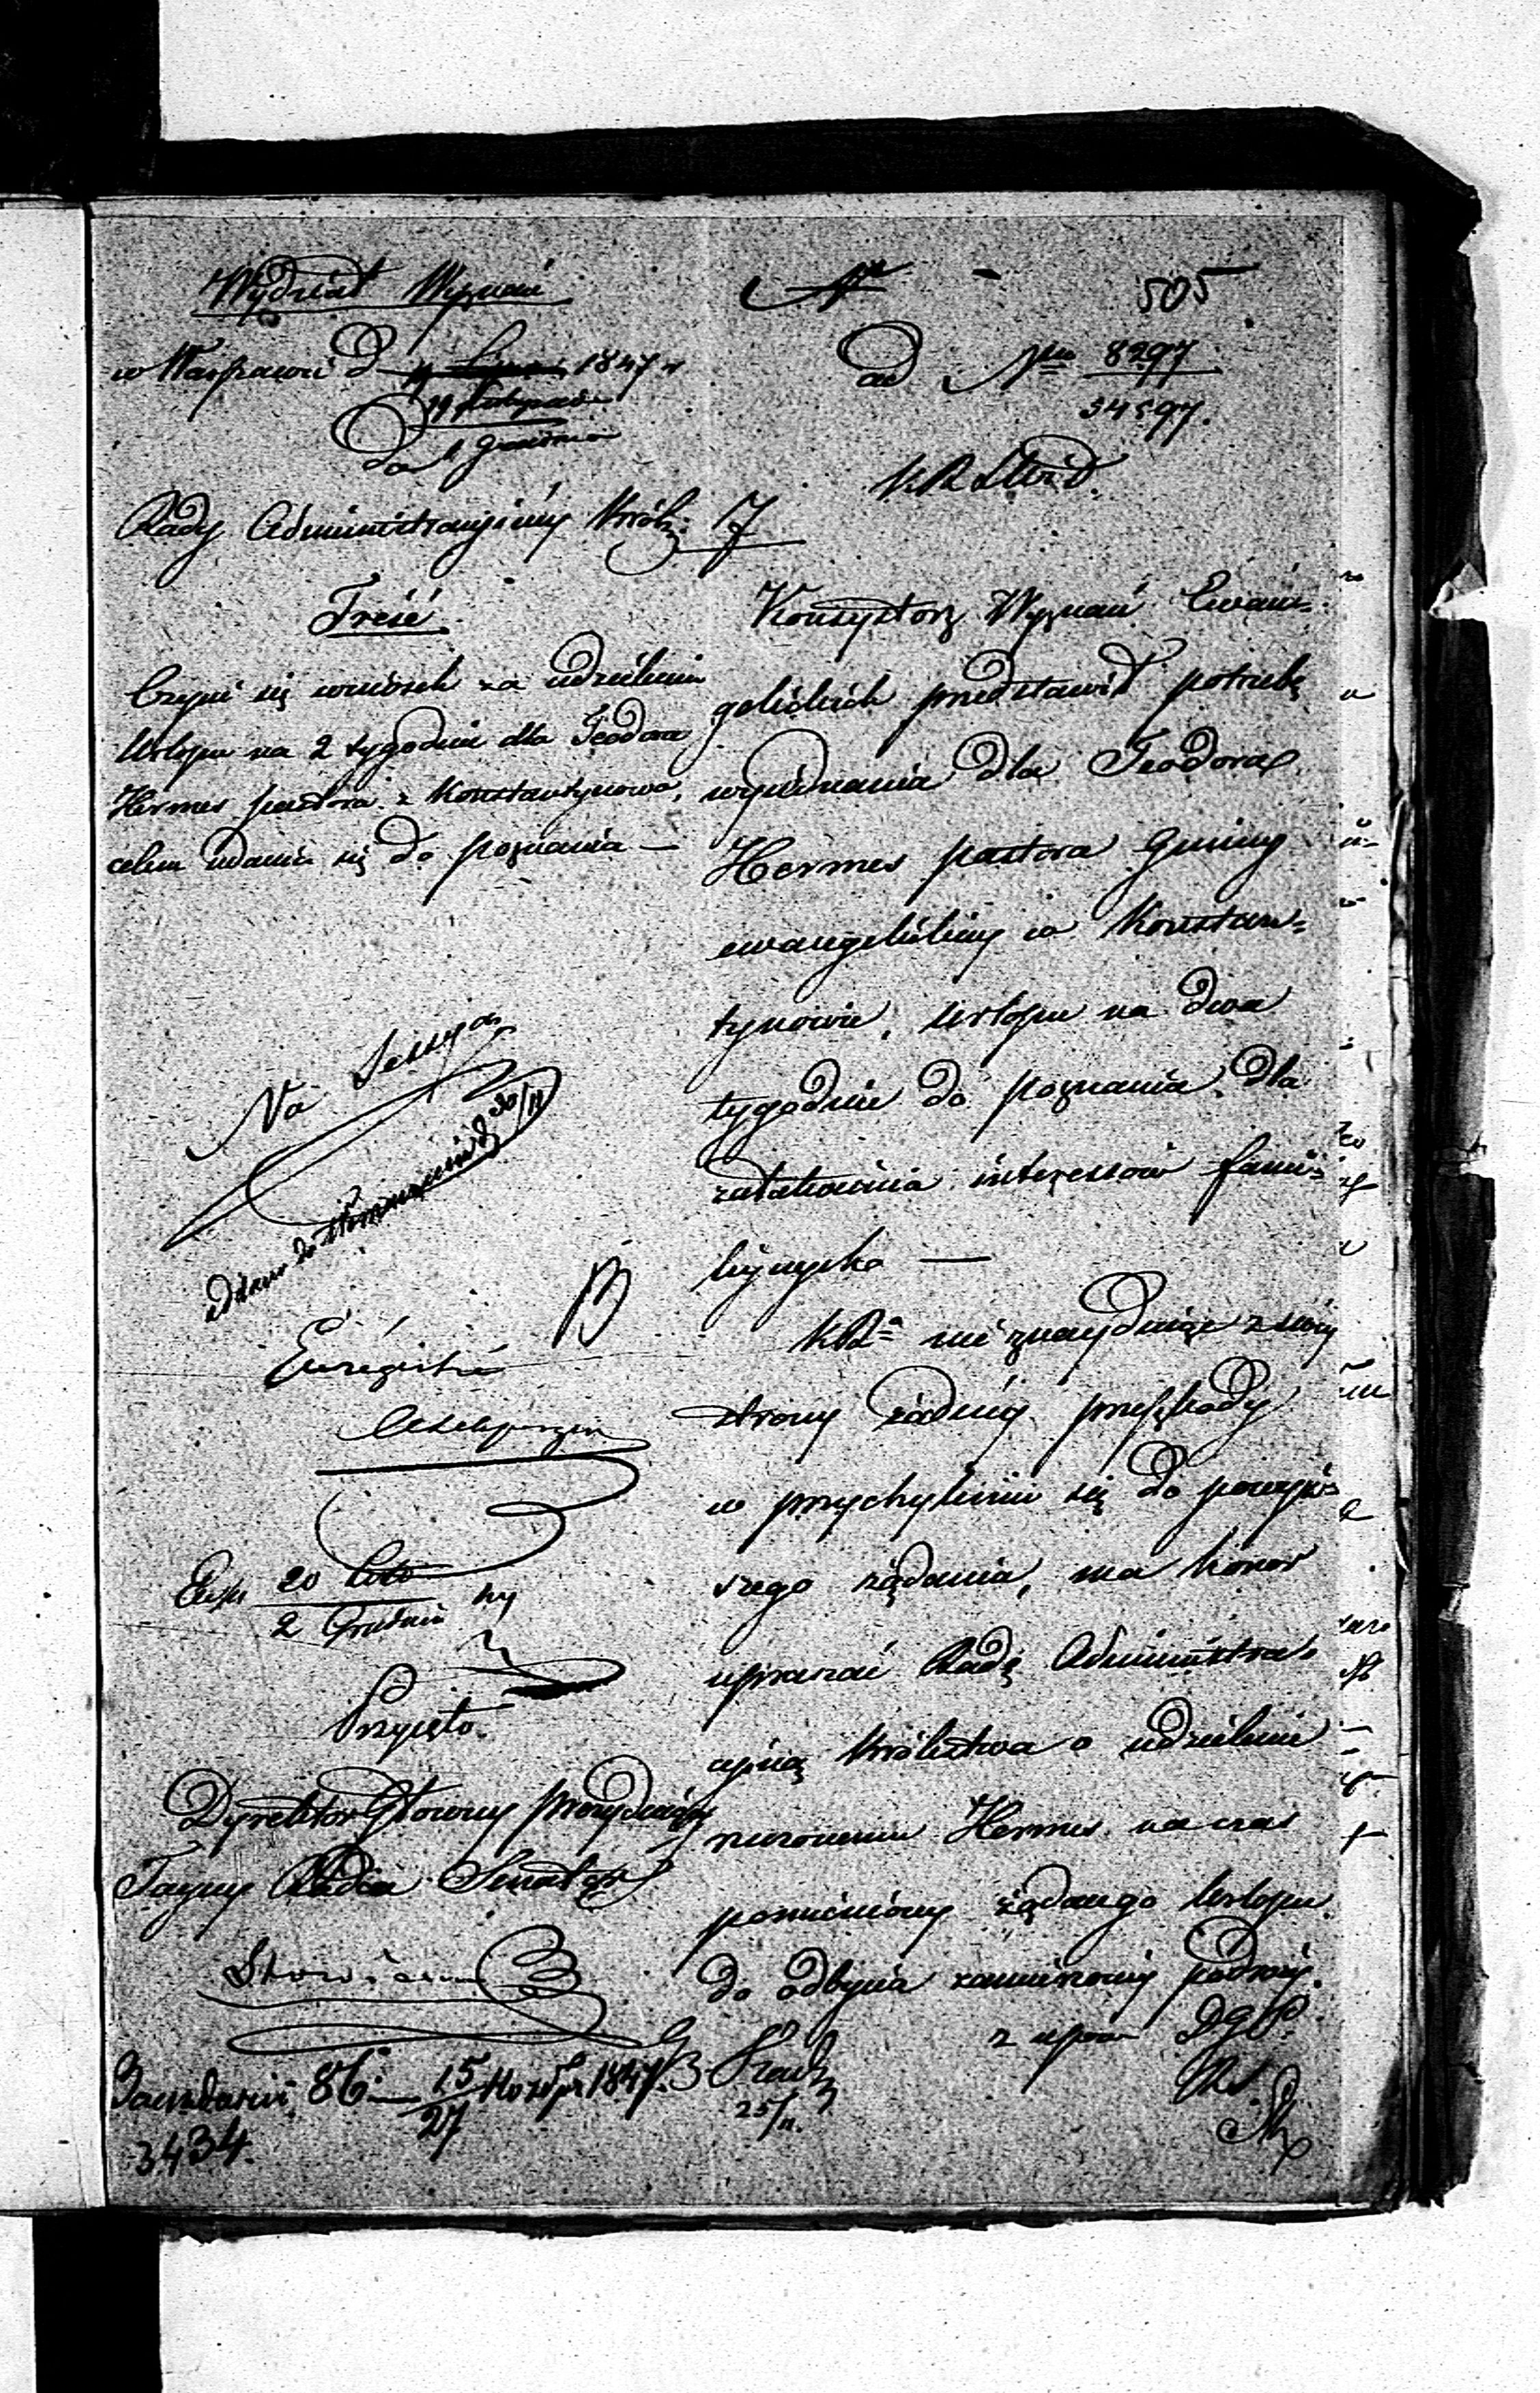 Wydział Wyznań
w Warszawie d 1847 r
19 Listopada
1 Grudnia
Do
Rady Administracyjnéy Król:
Treść
Czyni się wniosek za udzielenie
Urlopu na 2 tygodnie dla Teodora
Hermes pastora z Konstantynowa,
celem udania się do Poznania —
Na Sessyą
30/11
Enregistré
Exp. 20 Listo
2 Grudnia
Przyjęto.
Dyrektor Główny Prezydujący
Tayny Radca Senator
86. 15/27 1847.
3434.
Nr - 505
ad Nr 8297
34597.
Konsystorz Wyznań Ewan=
gelickich przedstawił potrzebę
wyjednania dla Teodora
Hermes pastora Gminy
ewangelickiey w Konstan=
tynowie, Urlopu na dwa
tygodnie do Poznania, dla
załatwienia interessów fami=
lijnych —
KRa nie znayduiąc z swéy
strony żadnéy przeszkody
w przychyleniu się do powyż=
szego żądania, ma honor
upraszać Radę Administra=
cyjną Królestwa o udzielenie
rzeczonemu Hermes na czas
pomieniony żądanego Urlopu
do odbycia zamierzonéy podróży.
z upow D.G.P.
25/11.